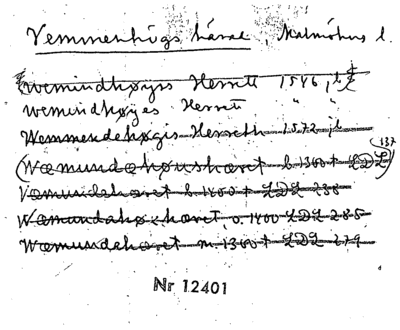 Vemmenhögs härad, Malmöhus l.
Wemindhøyrs Herrett 1546, jb
Wemindhøyes Herrett " "
Wemmendehøgis Herreth 1572 jb
137
(Wæmundahøushæret b. 1300 t LDL)
Væmundehæret b. 1400 t LDL 288
Wæmundahøxhæret, o. 1400 LDL 285
Wæmundehæret m. 1300 t LDL 279
Nr 12401